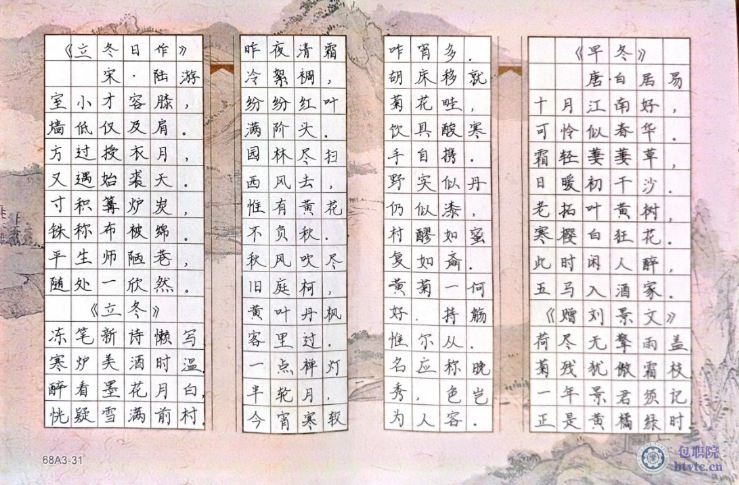 《立冬日作》
宋·陆游
室小才容膝，
墙低仅及肩.
方过授衣月，
又遇始裘天.
寸积篝炉炭，
铢称布被绵.
平生师陋巷，
随处一欣然.
《立冬》
冻笔新诗懒写
寒炉美酒时温
醉看墨花月白，
恍疑雪满前村.
昨夜清霜
冷絮裯，
纷纷红叶
满阶头.
园林尽扫
西风去，
惟有黄花
不负秋.
秋风吹尽
旧庭柯，
黄叶丹枫
客里过.
一点禅灯
半轮月，
今宵寒较
昨宵多.
胡床移就
菊花畦，
饮具酸寒
手自携.
野实似丹
仍似漆，
村醪如蜜
复如齑.
黄菊一何
好，持觞
惟尔从.
名应称晚
秀，色岂
为人容.
《早冬》
唐·白居易
十月江南好，
可怜似春华.
霜轻萋萋草，
日暖初干沙.
老柘叶黄树，
寒樱白狂花.
此时闲人醉，
五马入酒家.
《赠刘景文》
荷尽无擎雨盖
菊残犹傲霜枝
一年景君须记
正是黄橘绿时
68A3-31
包职院
btvtc.cn